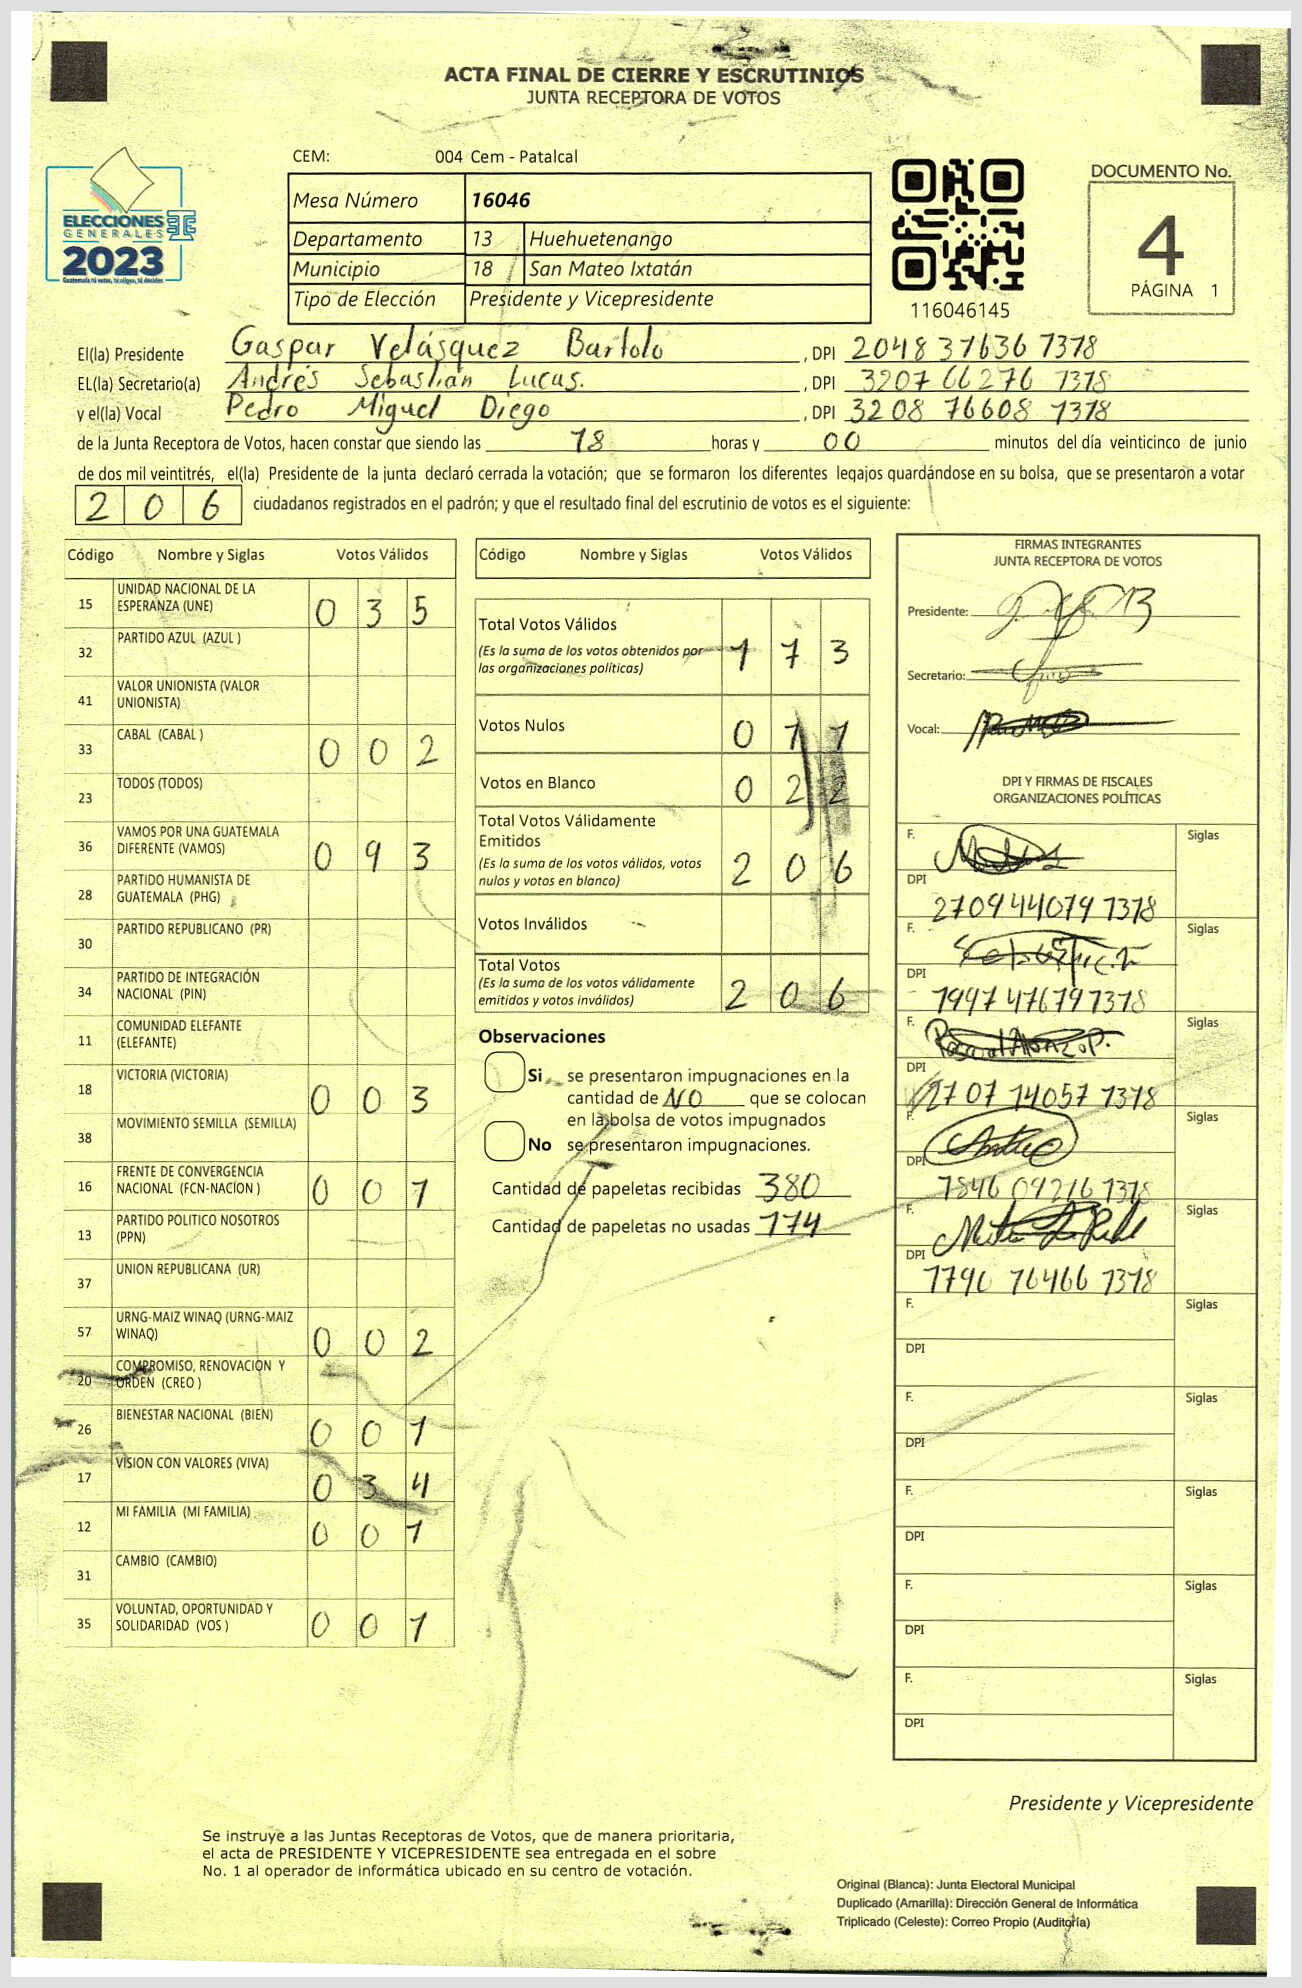 ACTA FINAL DE CIERRE Y ESCRUTINIOS
JUNTA RECEPTORA DE VOTOS
CEM: 004 Cem - Patalcal
ELECCIONES
GENERALES
2023
Guatemala tú votas, tú eliges, tú decides
Mesa Número 16046
Departamento 13 Huehuetenango
Municipio 18 San Mateo Ixtatán
Tipo de Elección Presidente y Vicepresidente
116046145
DOCUMENTO No.
4
PÁGINA 1
El(la) Presidente Gaspar Velásquez Bartolo , DPI 2048 37636 1318
EL(la) Secretario(a) Andrés Sebastián Lucas. , DPI 3207 66276 1318
y el(la) Vocal Pedro Miguel Diego , DPI 3208 76608 1318
de la Junta Receptora de Votos, hacen constar que siendo las 18 horas y 00 minutos del día veinticinco de junio
de dos mil veintitrés, el(la) Presidente de la junta declaró cerrada la votación; que se formaron los diferentes legajos quardándose en su bolsa, que se presentaron a votar
206 ciudadanos registrados en el padrón; y que el resultado final del escrutinio de votos es el siguiente:
Código Nombre y Siglas Votos Válidos
15 UNIDAD NACIONAL DE LA ESPERANZA (UNE) 035
32 PARTIDO AZUL (AZUL )
41 VALOR UNIONISTA (VALOR UNIONISTA)
33 CABAL (CABAL ) 002
23 TODOS (TODOS)
36 VAMOS POR UNA GUATEMALA DIFERENTE (VAMOS) 093
28 PARTIDO HUMANISTA DE GUATEMALA (PHG)
30 PARTIDO REPUBLICANO (PR)
34 PARTIDO DE INTEGRACIÓN NACIONAL (PIN)
11 COMUNIDAD ELEFANTE (ELEFANTE)
18 VICTORIA (VICTORIA) 003
38 MOVIMIENTO SEMILLA (SEMILLA)
16 FRENTE DE CONVERGENCIA NACIONAL (FCN-NACION ) 001
13 PARTIDO POLITICO NOSOTROS (PPN)
37 UNION REPUBLICANA (UR)
57 URNG-MAIZ WINAQ (URNG-MAIZ WINAQ) 002
20 COMPROMISO, RENOVACION Y ORDEN (CREO )
26 BIENESTAR NACIONAL (BIEN) 001
17 VISION CON VALORES (VIVA) 034
12 MI FAMILIA (MI FAMILIA) 001
31 CAMBIO (CAMBIO)
35 VOLUNTAD, OPORTUNIDAD Y SOLIDARIDAD (VOS ) 001
Código Nombre y Siglas Votos Válidos
Total Votos Válidos 173
(Es la suma de los votos obtenidos por
las organizaciones políticas)
Votos Nulos 011
Votos en Blanco 022
Total Votos Válidamente
Emitidos 206
(Es la suma de los votos válidos, votos
nulos y votos en blanco)
Votos Inválidos
Total Votos 206
(Es la suma de los votos válidamente
emitidos y votos inválidos)
Observaciones
Si se presentaron impugnaciones en la
cantidad de NO que se colocan
en la bolsa de votos impugnados
No se presentaron impugnaciones.
Cantidad de papeletas recibidas 380
Cantidad de papeletas no usadas 174
FIRMAS INTEGRANTES
JUNTA RECEPTORA DE VOTOS
Presidente:
Secretario:
Vocal:
DPI Y FIRMAS DE FISCALES
ORGANIZACIONES POLÍTICAS
F. Siglas
DPI 2709 44079 1318
F. Siglas
DPI 1997 47679 1318
F. Siglas
DPI 2707 14057 1318
F. Siglas
DPI 1846 09216 1318
F. Siglas
DPI 1790 76466 1318
F. Siglas
DPI
F. Siglas
DPI
F. Siglas
DPI
F. Siglas
DPI
F. Siglas
DPI
Presidente y Vicepresidente
Se instruye a las Juntas Receptoras de Votos, que de manera prioritaria,
el acta de PRESIDENTE Y VICEPRESIDENTE sea entregada en el sobre
No. 1 al operador de informática ubicado en su centro de votación.
Original (Blanca): Junta Electoral Municipal
Duplicado (Amarilla): Dirección General de Informática
Triplicado (Celeste): Correo Propio (Auditoría)